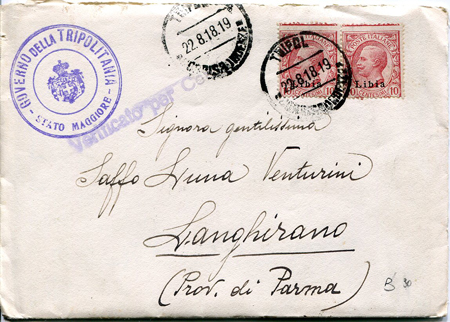 GOVERNO DELLA TRIPOLITANIA
- STATO MAGGIORE -
22.8.18.19
TRIPOLI
22.8.18.19
POSTE ITALIANE
Libia
10 10
Verificato per C
Signora gentilissima
Saffo Luna Venturini
Langhirano
(Prov. di Parma)
30